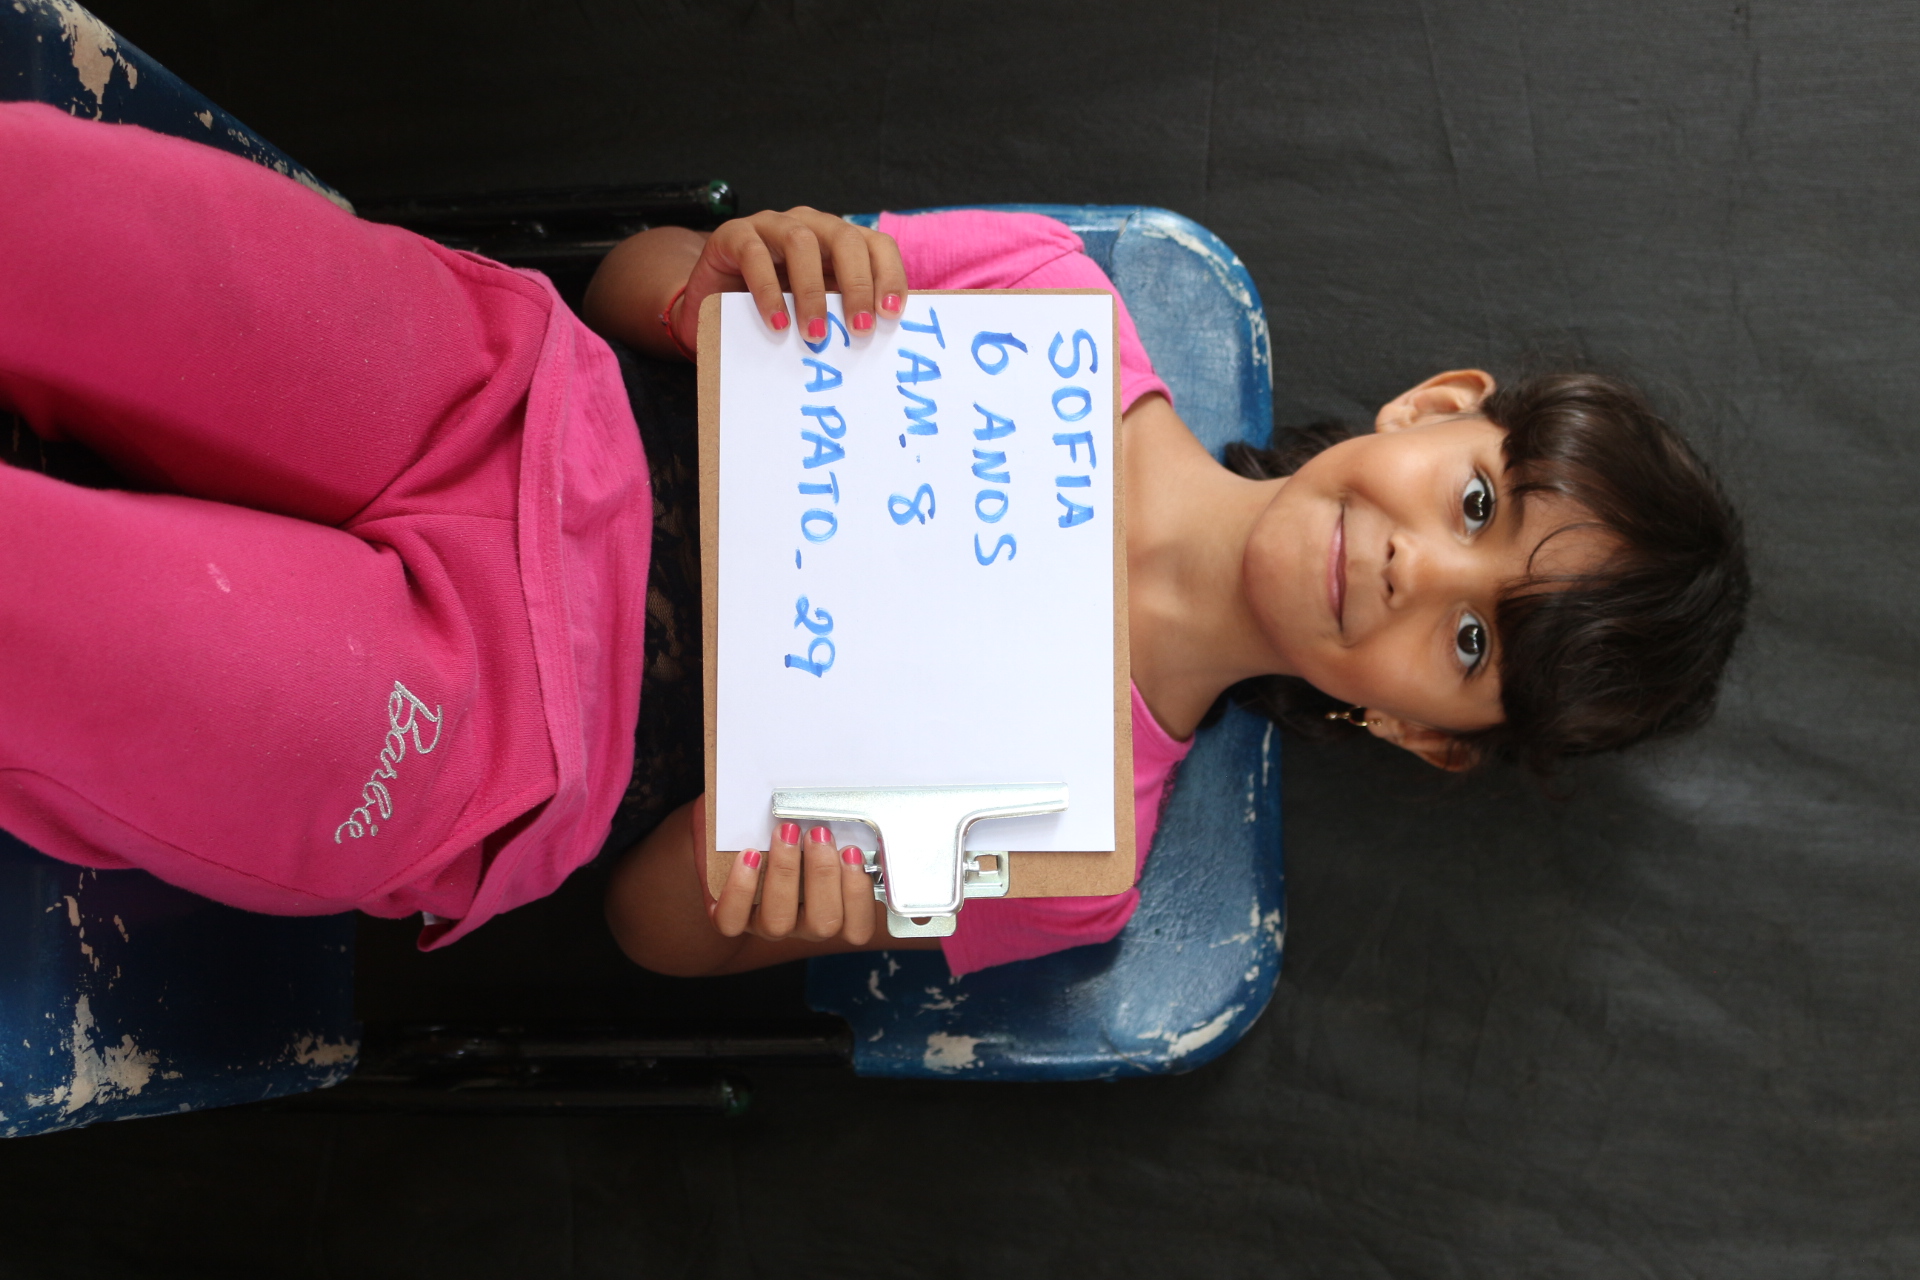 SOFIA
6 ANOS
TAM. - 8
SAPATO - 29
Barbie